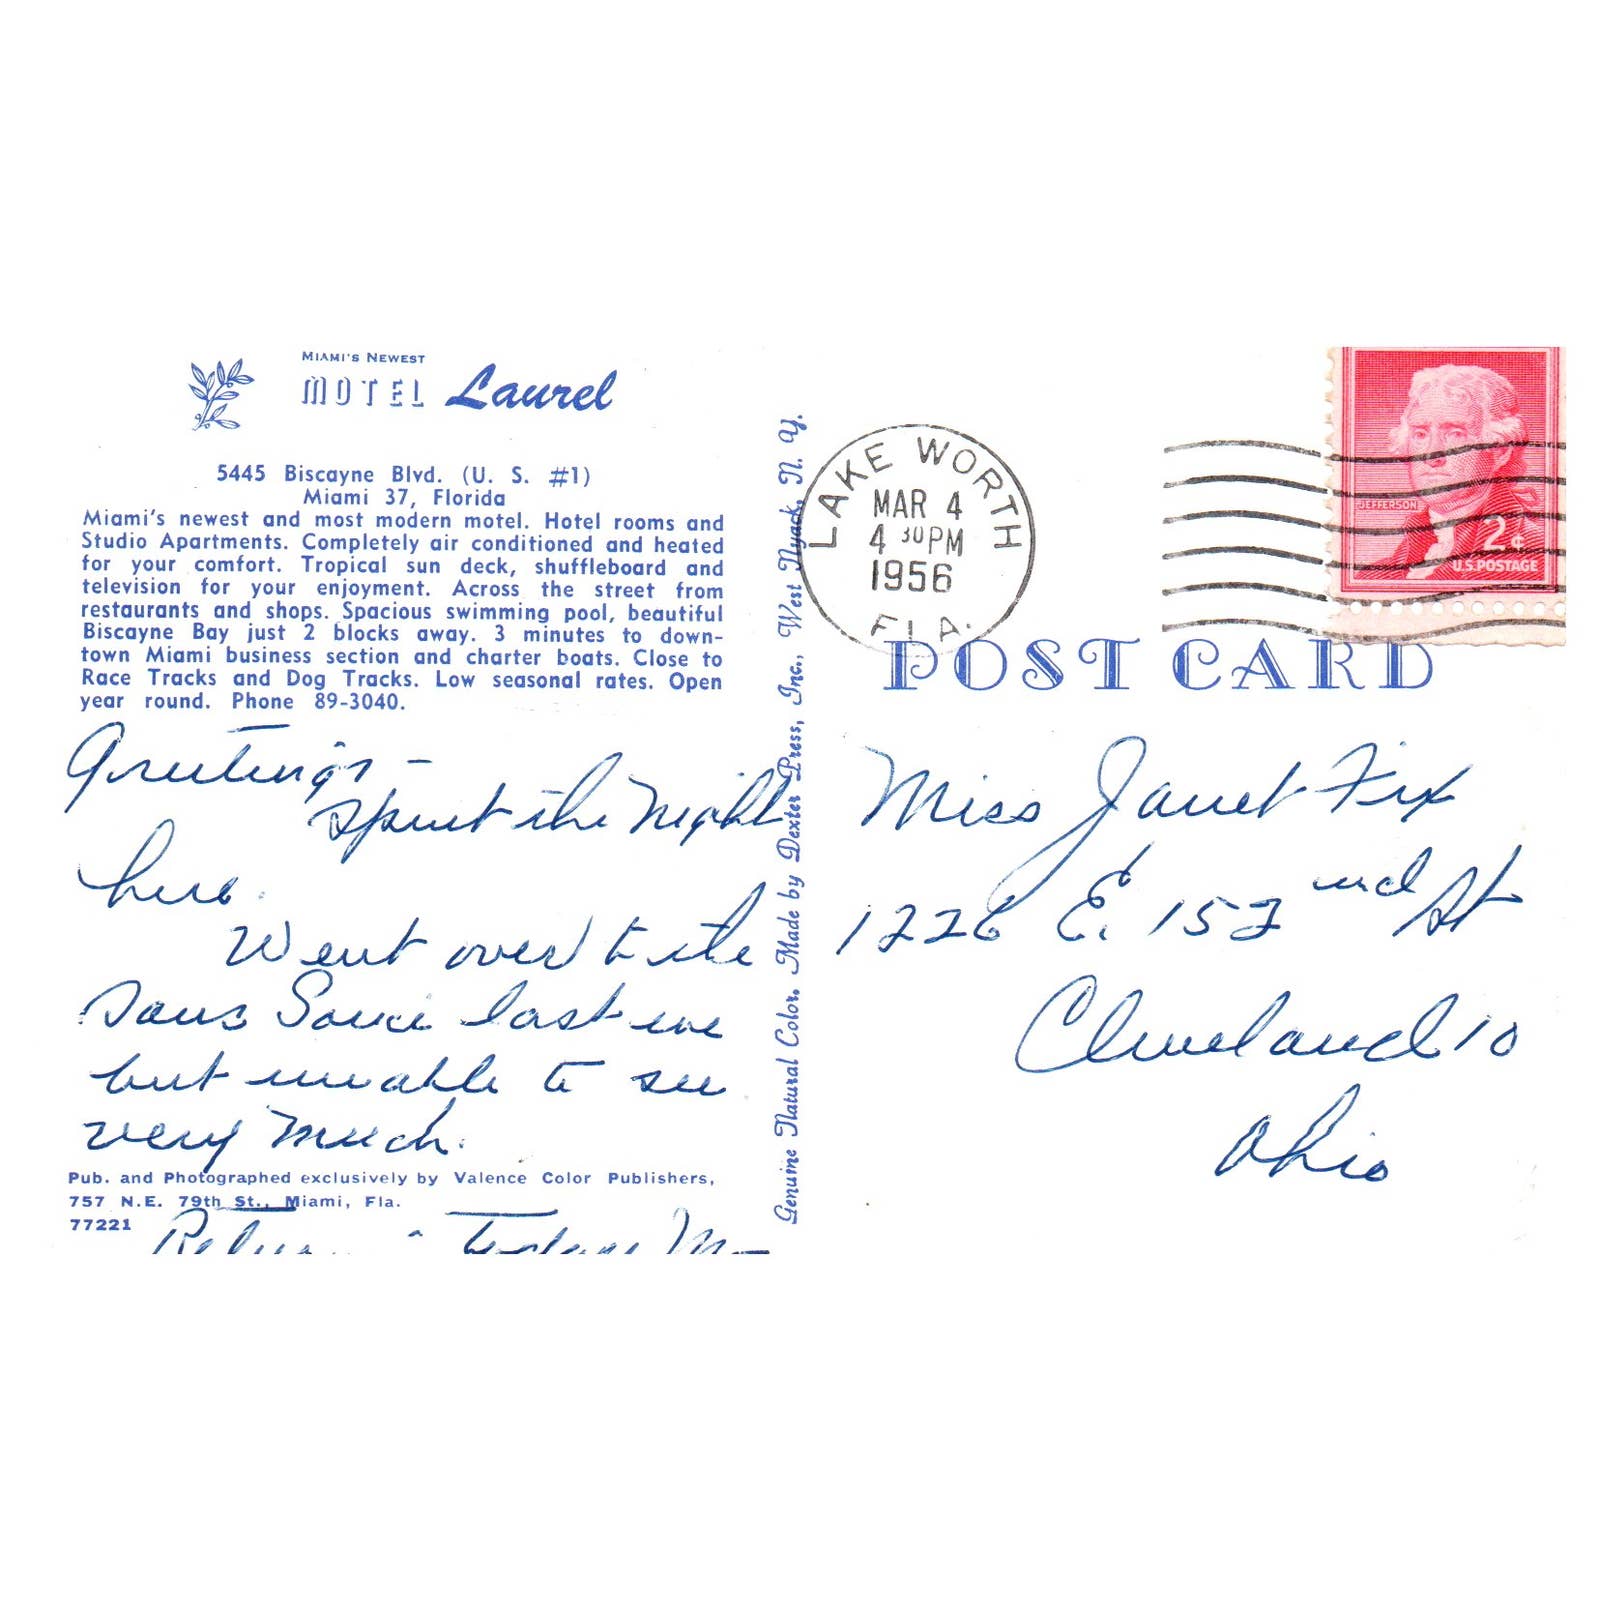 MIAMI'S NEWEST
MOTEL Laurel
5445 Biscayne Blvd. (U. S. #1)
Miami 37, Florida
Miami's newest and most modern motel. Hotel rooms and
Studio Apartments. Completely air conditioned and heated
for your comfort. Tropical sun deck, shuffleboard and
television for your enjoyment. Across the street from
restaurants and shops. Spacious swimming pool, beautiful
Biscayne Bay just 2 blocks away. 3 minutes to down-
town Miami business section and charter boats. Close to
Race Tracks and Dog Tracks. Low seasonal rates. Open
year round. Phone 89-3040.
Greetings -
Spent the Night
here.
Went over to the
Sans Souci last eve
but unable to see
very much.
Pub. and Photographed exclusively by Valence Color Publishers,
757 N.E. 79th St., Miami, Fla.
77221
Genuine Natural Color, Made by Dexter Press, Inc., West Nyack, N. Y.
LAKE WORTH
MAR 4
4 30 PM
1956
FLA.
JEFFERSON
2¢
U.S. POSTAGE
POST CARD
Miss Janet Fix
1226 E. 152nd St
Cleveland 10
Ohio